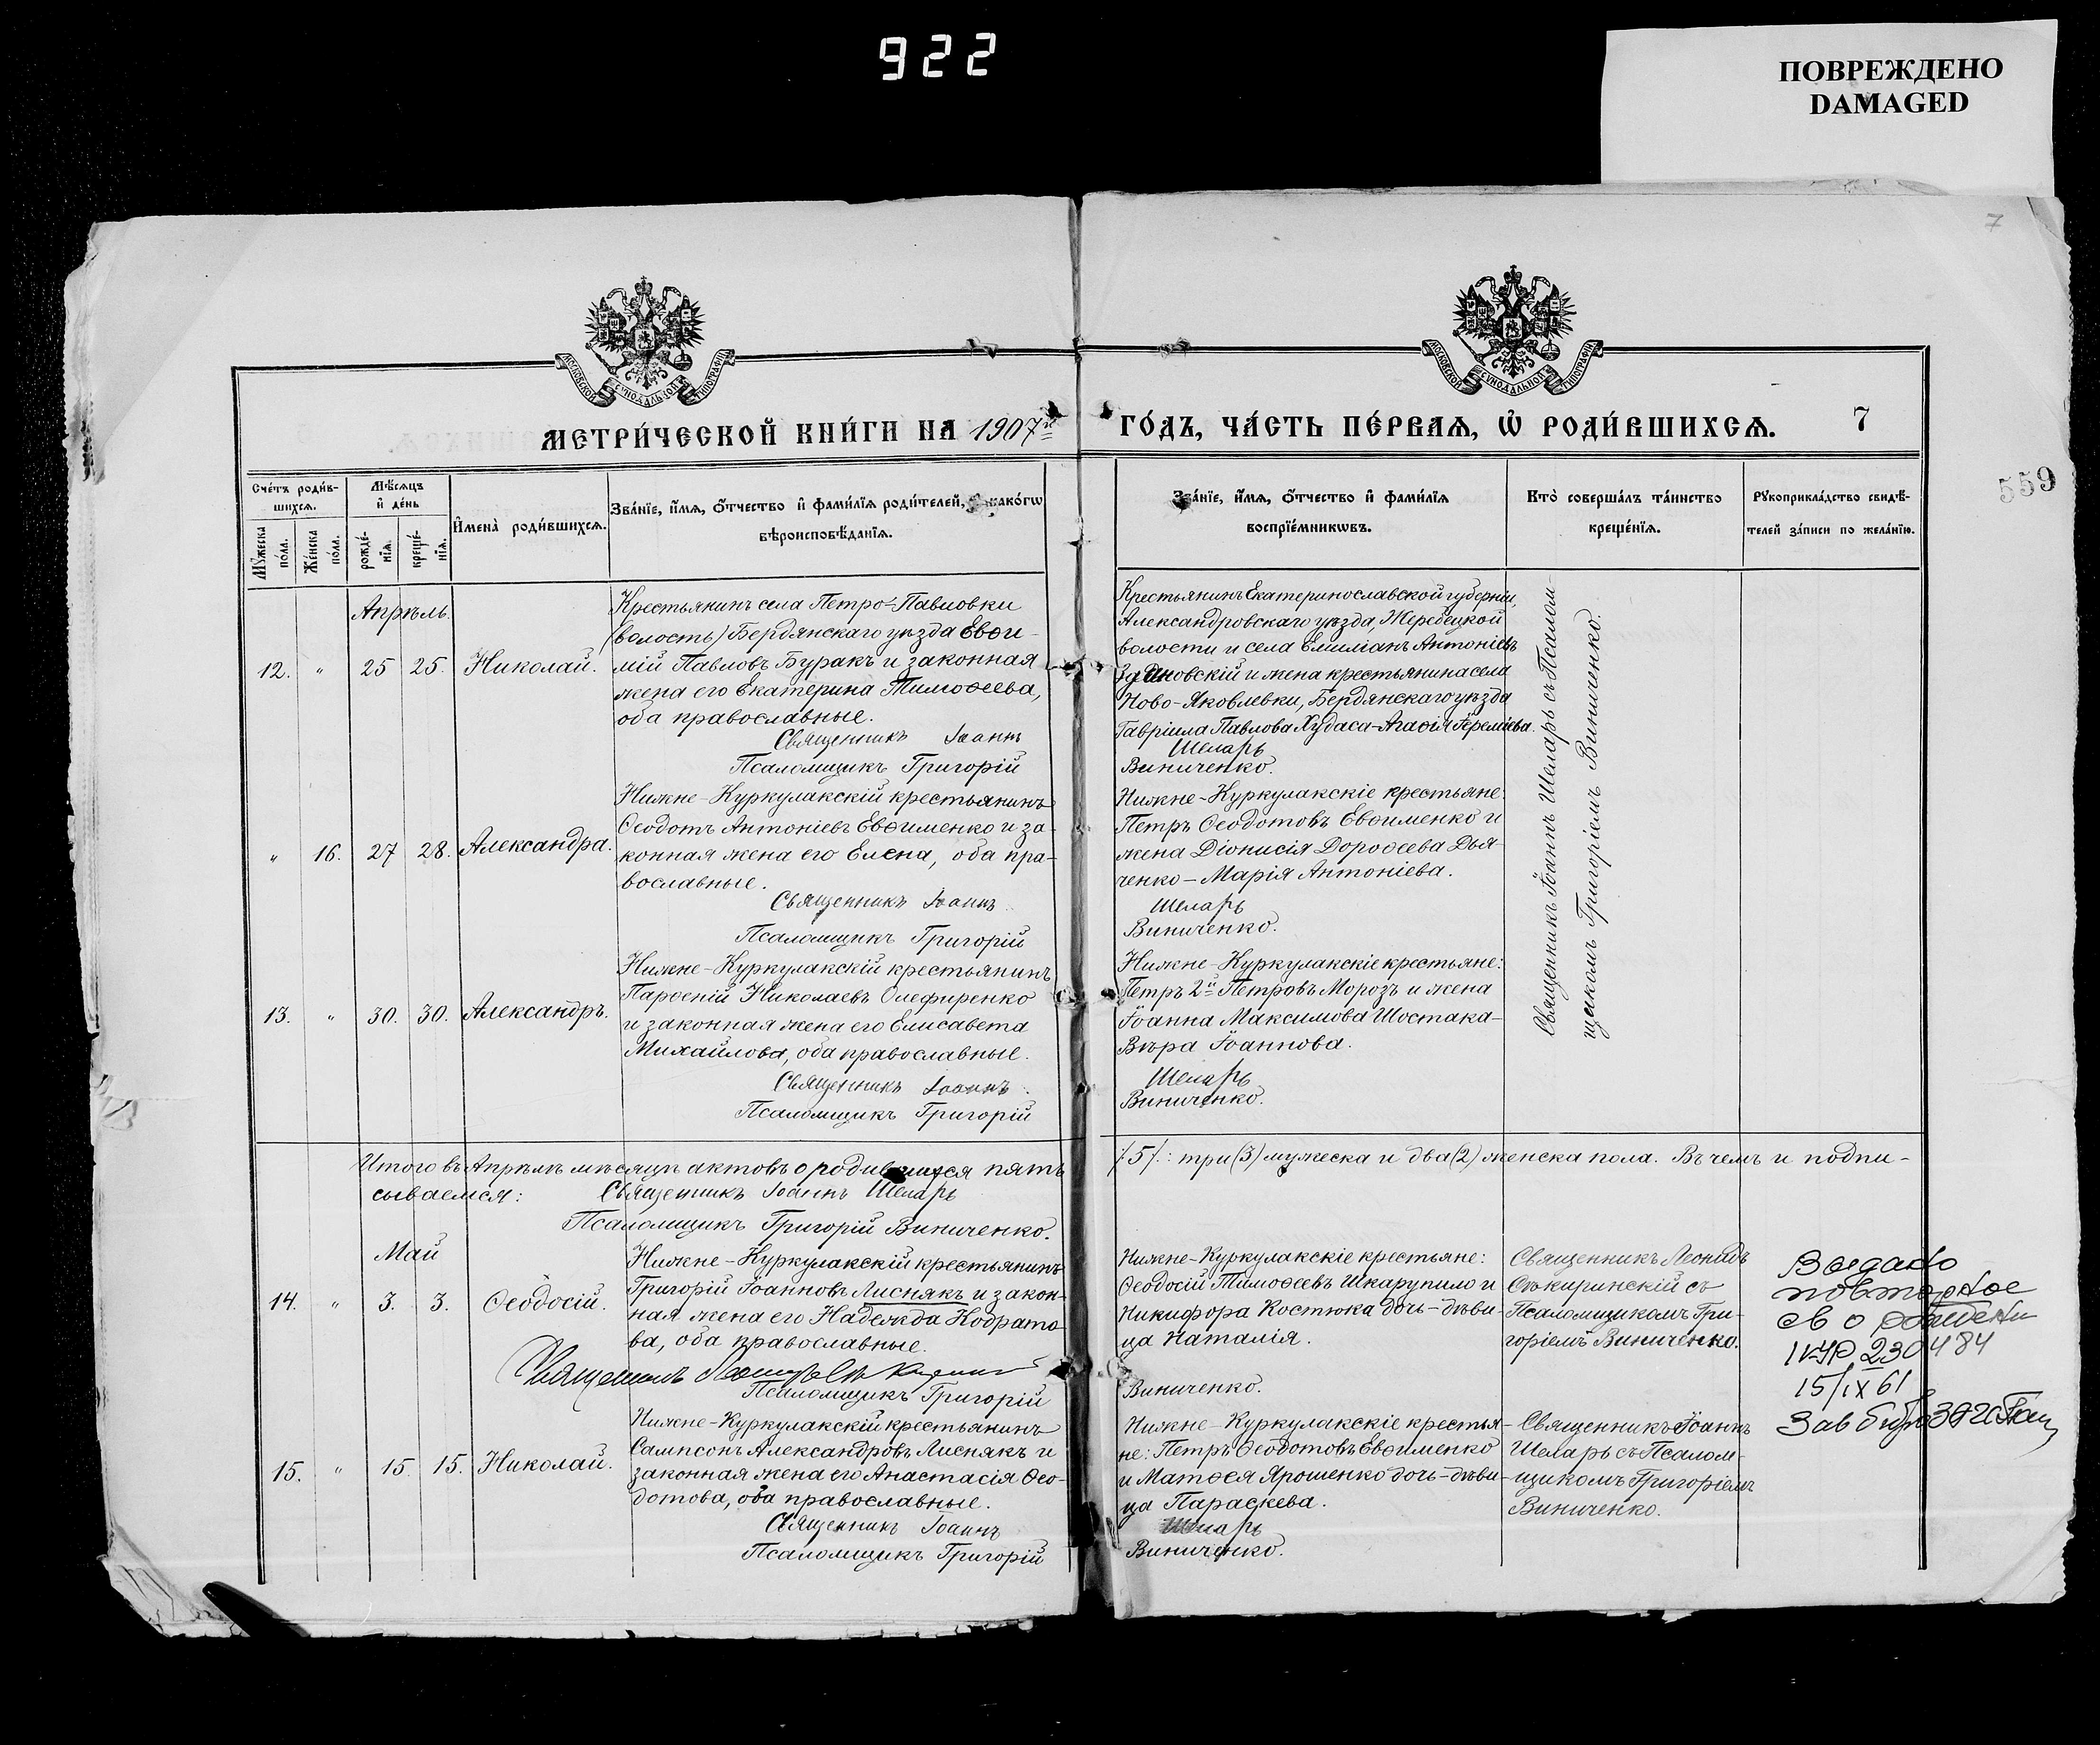 922
ПОВРЕЖДЕНО
DAMAGED
7
МОСКОВСКОЙ СѴНОДАЛЬНОЙ ТИПОГРАФІИ
МОСКОВСКОЙ СѴНОДАЛЬНОЙ ТИПОГРАФІИ
МЕТРИ́ЧЕСКОЙ КНИ́ГИ НА 1907й
ГО́ДЪ, ЧА́СТЬ ПЕ́РВАѦ, Ѡ҆ РОДИ́ВШИХСѦ. 7
559
Сче́тъ роди́в-
шихсѧ.
Мѣ́сѧцъ
и҆ де́нь
Мꙋ́жеска
по́ла.
Же́нска
по́ла.
рожде́-
нїѧ.
креще́-
нїѧ.
И҆мена̀ роди́вшихсѧ.
Зва́нїе, и҆́мѧ, ѻ҆́тчество и҆ фами́лїѧ роди́телей, и҆ како́гѡ
вѣроисповѣ́данїѧ.
Зва́нїе, и҆́мѧ, ѻ҆́тчество и҆ фами́лїѧ
воспрїе́мникѡвъ.
Кто̀ соверша́лъ та́инство
креще́нїѧ.
Рꙋкоприкла́дство свидѣ́-
телей за́писи по жела́нїю.
Апрѣль.
12. " 25 25. Николай.
Крестьянинъ села Петро-Павловки
(волость) Бердянскаго уѣзда Евѳи-
мій Павловъ Буракъ и законная
жена его Екатерина Тимоѳеева,
оба православные.
Священникъ Іоаннъ
Псаломщикъ Григорій
Крестьянинъ Екатеринославской губерніи,
Александровскаго уѣзда, Жеребецкой
волости и села Емиліанъ Антоніевъ
и жена крестьянина села
Ново-Яковлевки, Бердянскаго уѣзда
Гавріила Павлова Худаса-Агаѳія Іереміева.
Шеларь
Виниченко.
Священникъ Іоаннъ Шеларь съ Псалом-
щикомъ Григоріемъ Виниченко.
" 16. 27 28. Александра.
Нижне-Куркулакскій крестьянинъ
Ѳеодотъ Антоніевъ Евѳименко и за-
конная жена его Елена, оба пра-
вославные.
Священникъ Іоаннъ
Псаломщикъ Григорій
Нижне-Куркулакскіе крестьяне:
Петръ Ѳеодотовъ Евѳименко и
жена Діонисія Дороѳеева Дья-
ченко-Марія Антоніева.
Шеларь
Виниченко.
13. " 30. 30. Александръ.
Нижне-Куркулакскій крестьянинъ
Парѳеній Николаевъ Олефиренко
и законная жена его Елисавета
Михайлова, оба православные.
Священникъ Іоаннъ
Псаломщикъ Григорій
Нижне-Куркулакскіе крестьяне:
Петръ 2й Петровъ Морозъ и жена
Іоанна Максимова Шостака-
Вѣра Іоаннова.
Шеларь
Виниченко.
Итого въ Апрѣлѣ мѣсяцѣ актовъ о родившихся пять
/.5/.: три (3) мужеска и два (2) женска пола. Въ чемъ и подпи-
сываемся: Священникъ Іоаннъ Шеларь
Псаломщикъ Григорій Виниченко.
Май
14. " 3. 3. Ѳеодосій.
Нижне-Куркулакскій крестьянинъ
Григорій Іоанновъ Лиснякъ и закон-
ная жена его Надежда Кодрато-
ва, оба православные.
Священникъ Леонидъ
Псаломщикъ Григорій
Нижне-Куркулакскіе крестьяне:
Ѳеодосій Тимоѳеевъ Шкарупило и
Никифора Костюка дочь-дѣви-
ца Наталія.
Виниченко.
Священникъ Леонидъ
съ
Псаломщикомъ Гри-
горіемъ Виниченко.
Выдано
повторное
св о рождени
230484
15/IX 61
Зав бюро ЗАГС
15. " 15. 15. Николай.
Нижне-Куркулакскій крестьянинъ
Сампсонъ Александровъ Лиснякъ и
законная жена его Анастасія Ѳео-
дотова, оба православные.
Священникъ Іоаннъ
Псаломщикъ Григорій
Нижне-Куркулакскіе крестья-
не: Петръ Ѳеодотовъ Евѳименко
и Матѳея Ярошенко дочь-дѣви-
ца Параскева.
Шеларь
Виниченко.
Священникъ Іоаннъ
Шеларь съ Псалом-
щикомъ Григоріемъ
Виниченко.